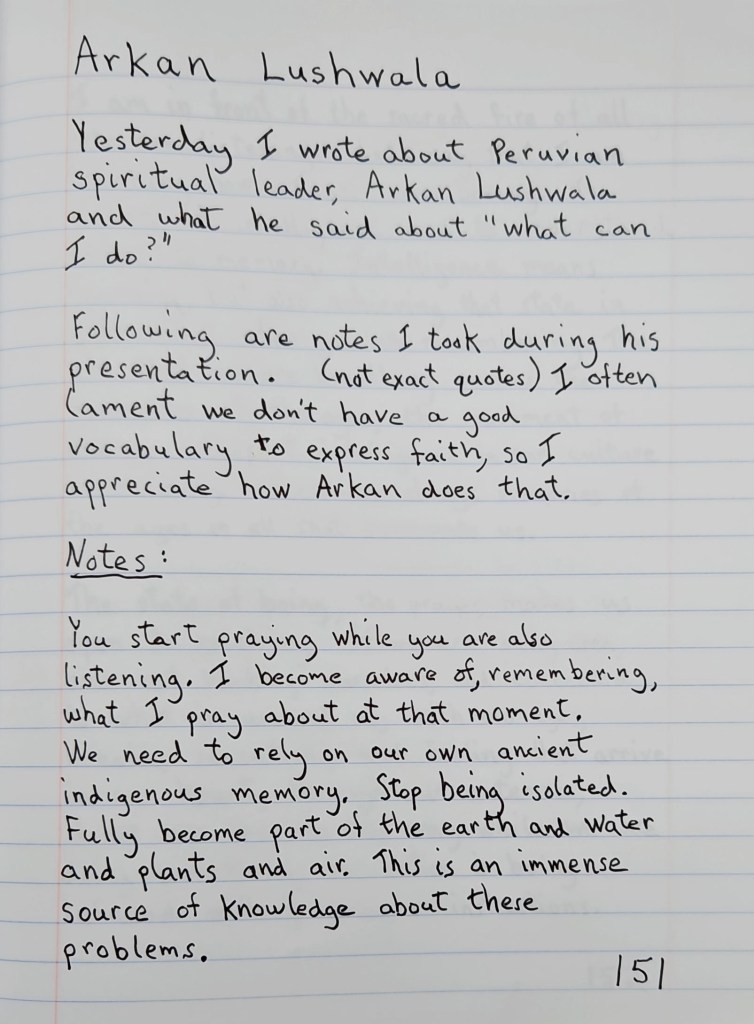 Arkan Lushwala
Yesterday I wrote about Peruvian
spiritual leader, Arkan Lushwala
and what he said about "what can
I do?"
Following are notes I took during his
presentation. (not exact quotes) I often
lament we don't have a good
vocabulary to express faith, so I
appreciate how Arkan does that.
Notes:
You start praying while you are also
listening. I become aware of, remembering,
what I pray about at that moment.
We need to rely on our own ancient
indigenous memory. Stop being isolated.
Fully become part of the earth and water
and plants and air. This is an immense
source of knowledge about these
problems.
151